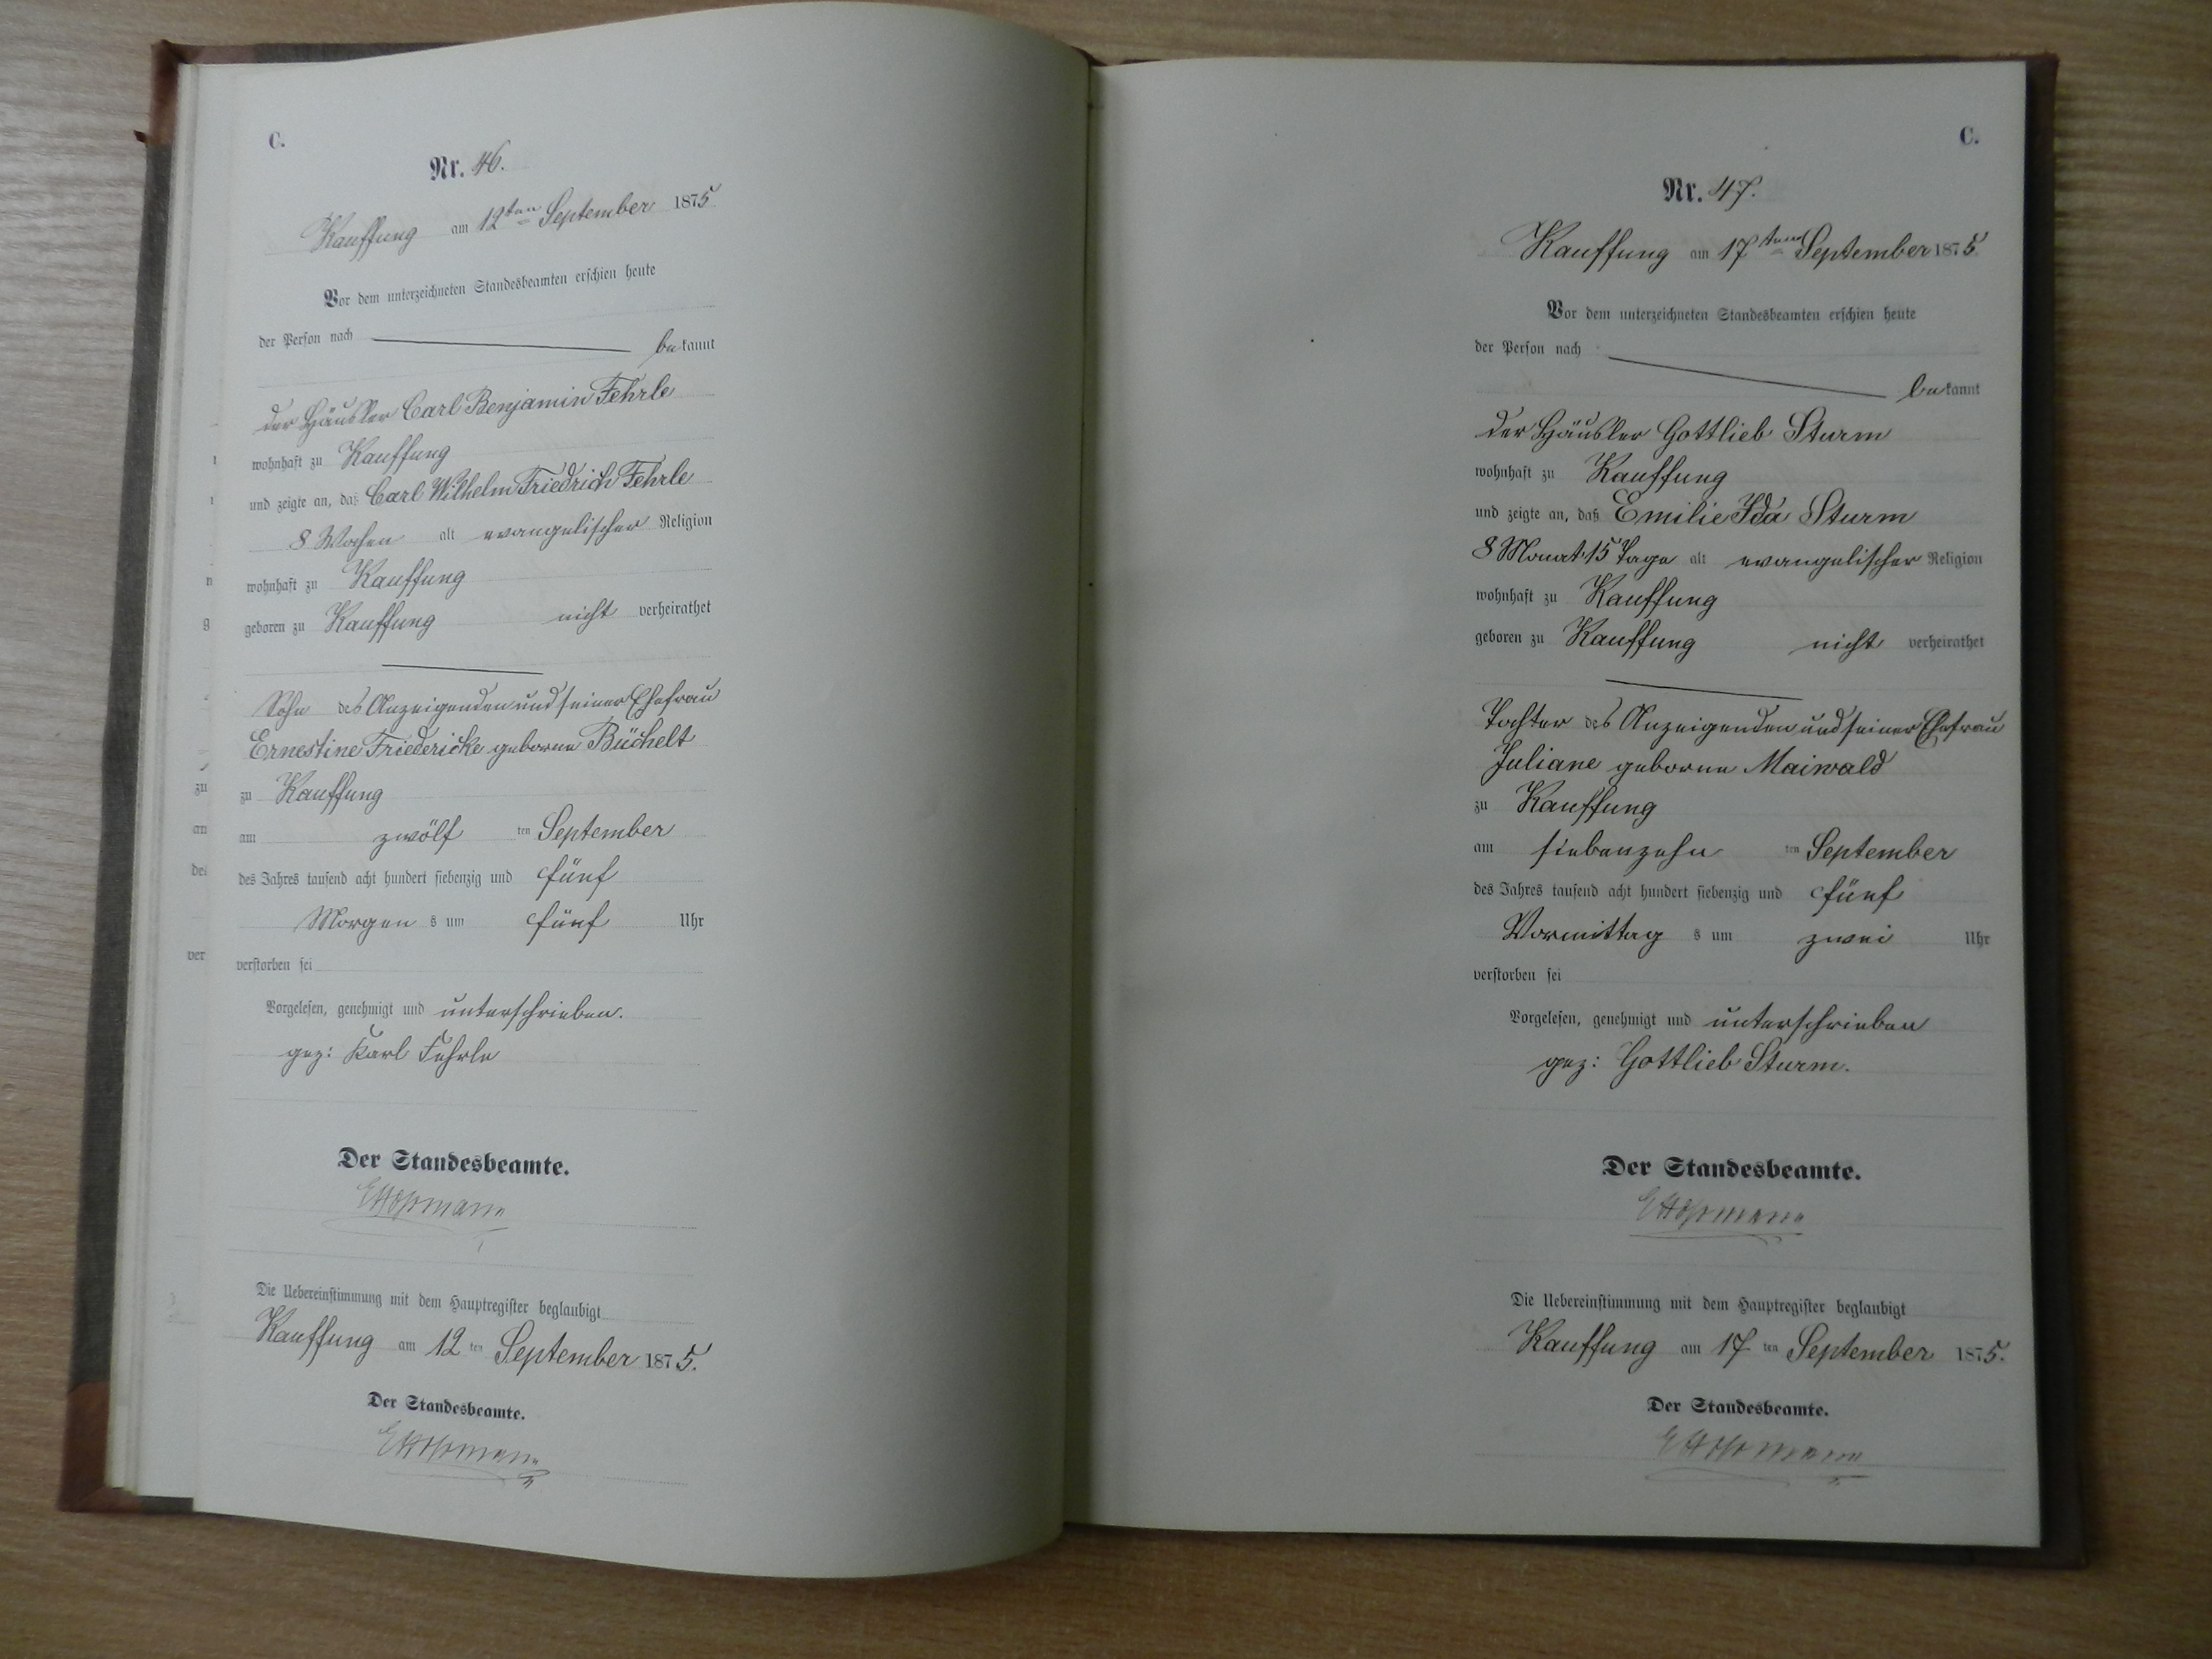 C.
Nr. 46.
Kauffung am 12ten September 1875
Vor dem unterzeichneten Standesbeamten erschien heute
der Person nach
bekannt
der Häusler Carl Benjamin Fehrle
wohnhaft zu Kauffung
und zeigte an, daß Carl Wilhelm Friedrich Fehrle
8 Wochen alt evangelischer Religion
wohnhaft zu Kauffung
geboren zu Kauffung nicht verheirathet
Sohn des Anzeigenden und seiner Ehefrau
Ernestine Friedericke geborne Büchelt
zu Kauffung
am zwölf ten September
des Jahres tausend acht hundert siebenzig und fünf
Morgen s um fünf Uhr
verstorben sei
Vorgelesen, genehmigt und unterschrieben.
gez: Karl Fehrle
Der Standesbeamte.
Die Uebereinstimmung mit dem Hauptregister beglaubigt
Kauffung am 12 ten September 1875.
Der Standesbeamte.
C.
Nr. 47.
Kauffung am 17ten September 1875
Vor dem unterzeichneten Standesbeamten erschien heute
der Person nach
bekannt
der Häusler Gottlieb Sturm
wohnhaft zu Kauffung
und zeigte an, daß Emilie Ida Sturm
8 Monat 15 Tage alt evangelischer Religion
wohnhaft zu Kauffung
geboren zu Kauffung nicht verheirathet
Tochter des Anzeigenden und seiner Ehefrau
Juliane geborne Maiwald
zu Kauffung
am siebenzehn ten September
des Jahres tausend acht hundert siebenzig und fünf
Vormittag s um zwei Uhr
verstorben sei
Vorgelesen, genehmigt und unterschrieben
gez: Gottlieb Sturm.
Der Standesbeamte.
Die Uebereinstimmung mit dem Hauptregister beglaubigt
Kauffung am 17 ten September 1875.
Der Standesbeamte.